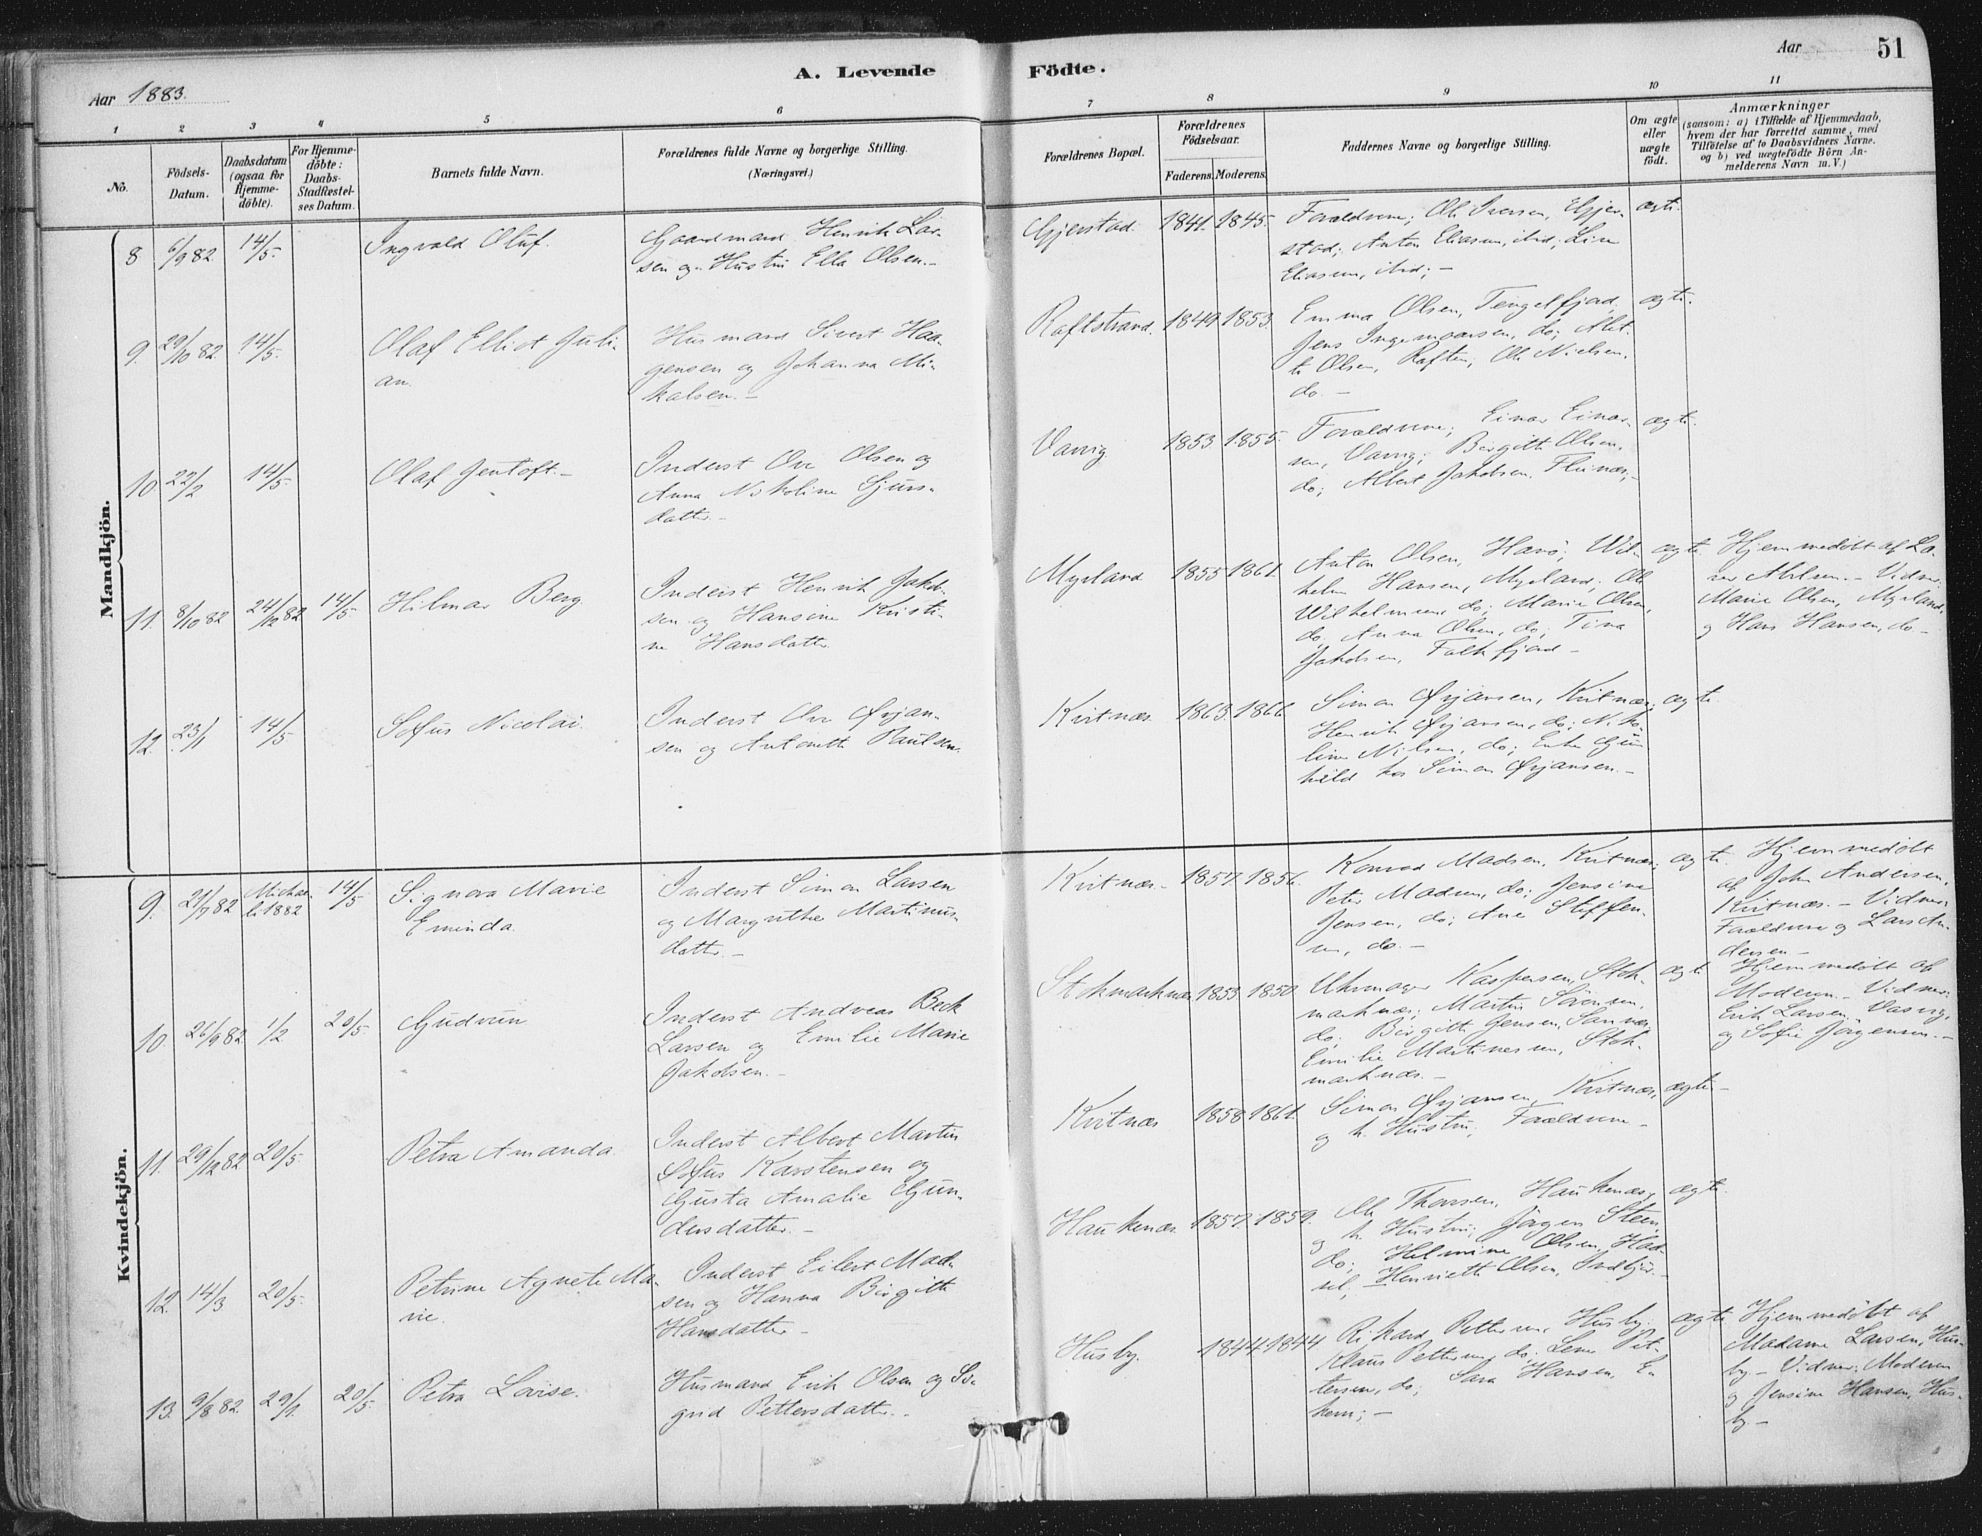 Aar 1883.
A. Levende
Födte.
Aar
51
1 2 3 4 5 6 7 8 9 10 11
No.
Födsels-
Datum.
Daabsdatum
(ogsaa for
Hjemme-
döbte).
For Hjemme-
döbte:
Daabs-
Stadfæstel-
ses Datum.
Barnets fulde Navn.
Forældrenes fulde Navne og borgerlige Stilling.
(Næringsvei.)
Forældrenes Bopæl.
Forældrenes
Födselsaar.
Faderens. Moderens.
Faddernes Navne og borgerlige Stilling.
Om ægte
eller
uægte
födt.
Anmærkninger
(saasom: a) i Tilfælde af Hjemmedaab,
hvem der har forrettet samme, med
Tilföielse af to Daabsvidners Navne.
og b) ved uægtefödte Börn An-
melderens Navn m. V.)
Mandkjön.
8 6/9 82 14/5. Ingvald Oluf.
Gaardmand Henrik Lar-
sen og Hustru Ella Olsen.-
Gjerstad 1841. 1845.
Forældrene; Ole Iversen, Gjer-
stad; Anton Eliasen, ibid; Line
Eliasen, ibid; -
ægte.
9. 29/10 82 14/5. Olaf Elliot Juli-
an.
Husmand Sivert Haa-
gensen og Johanna Mi-
kalsen.-
Raftstrand. 1849. 1853.
Emma Olsen, Tengelfjord,
Jens Ingemarsen, do; Alet-
te Olsen, Raften; Ole Nielsen,
do. -
ægte.
10 22/2 14/5. Olaf Jentoft.-
Inderst Ove Olsen og
Anna Nikoline Sjurs-
datter.-
Varvig 1853 1855.
Forældrene; Einar Einar-
sen, Varvig; Birgitte Olsen,
do; Albert Jakobsen, Flinæs;-
ægte.
11. 8/10 82 24/12 82 14/5. Hilmar Berg
Inderst Henrik Jakob-
sen og Hansine Kristi-
ne Hansdatter
Myrland 1855 1861.
Anton Olsen, Havö; Wil-
helm Hansen, Myrland; Ole
Wilhelmsen, do; Marie Olsen,
do, Anna Olsen, do; Tina
Jakobsen, Falkfjord -
ægte
Hjemmedöbt af La-
Marie Olsen, Myrland,
og Hans Hansen, do-
12. 23/1 14/5 Sofus Nicolai.
Inderst Ove Ørjan-
sen og Antonette Paulsen.
Kvitnæs 1863. 1866
Simon Ørjansen, Kvitnæs;
Henrik Ørjansen, do; Niko-
line Nilsen, do; Enke Gun-
hild hos Simon Ørjansen.-
ægte
Kvindekjön.
9. 21/9 82 Michae-
li 1882 14/5 Signora Marie
Eminda.
Inderst Simon Larsen
og Margrethe Martinus-
datter.-
Kvitnæs. 1857. 1856.
Konrad Madsen, Kvitnæs;
Peter Madsen, do; Jensine
Jensen, do; Ane Steffen-
sen, do.-
ægte.
Hjemmedöbt
af John Andersen,
Kvitnæs.- Vidner:
Forældrene og Lars An-
dersen-
10. 26/9 82 1/2 20/5. Gudrun
Inderst Andreas Beck
Larsen og Emilie Marie
Jakobsen.-
Stokmarknæs. 1853. 1850.
Uhrmager Kaspersen, Stok-
marknæs; Martin Sörensen,
do. Birgitte Jensen, Sannæs,
Emilie Martinussen, Stok-
marknæs.-
ægte
Hjemmedöbt af
Moderen.- Vidner:
Erik Larsen, Vasvig,
og Sofie Jörgensen.-
11. 29/12 82 20/5. Petra Amanda.
Inderst Albert Martin
Sofus Karstensen og
Gusta Amalie Gun-
dersdatter.-
Kvitnæs 1858 1861.
Simon Ørjansen, Kvitnæs,
og h. Hustru; Forældrene-
ægte-
12. 14/3 20/5. Petrine Agnete Ma-
rie.
Inderst Eilert Mad-
sen og Hanna Birgitte
Hansdatter-
Haukenæs 1857. 1859.
Ole Thorsen, Haukenæs,
og h. Hustru; Jörgen Steen,
do; Helmine Olsen, Had-
sel; Henriette Olsen, Indbjør.-
ægte.
13. 9/8 82. 29/1. 20/5. Petra Lovise.
Husmand Erik Olsen og Si-
grid Pettersdatter.
Husby. 1844. 1844
Rikard Pettersen, Husby;
Klaus Pettersen, do; Lene Pet-
tersen, do; Sara Hansen, E-
kem; -
ægte
Hjemmedöbt af
Madame Larsen, Hus-
by.- Vidner: Moderen
og Jensine Hansen, Hus-
by.-